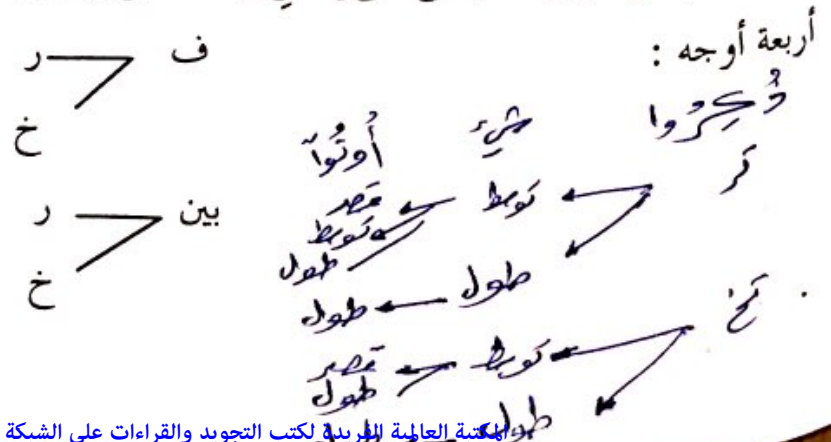 أربعة أوجه :
ف ر
خ
بين ر
خ
ذُكِّرُوا شيء أُوتُوا
تر توسط قصر
توسط
طول
طول طول
تخ توسط قصر
طول
طول
المكتبة العالمية الفريدة لكتب التجويد والقراءات على الشبكة